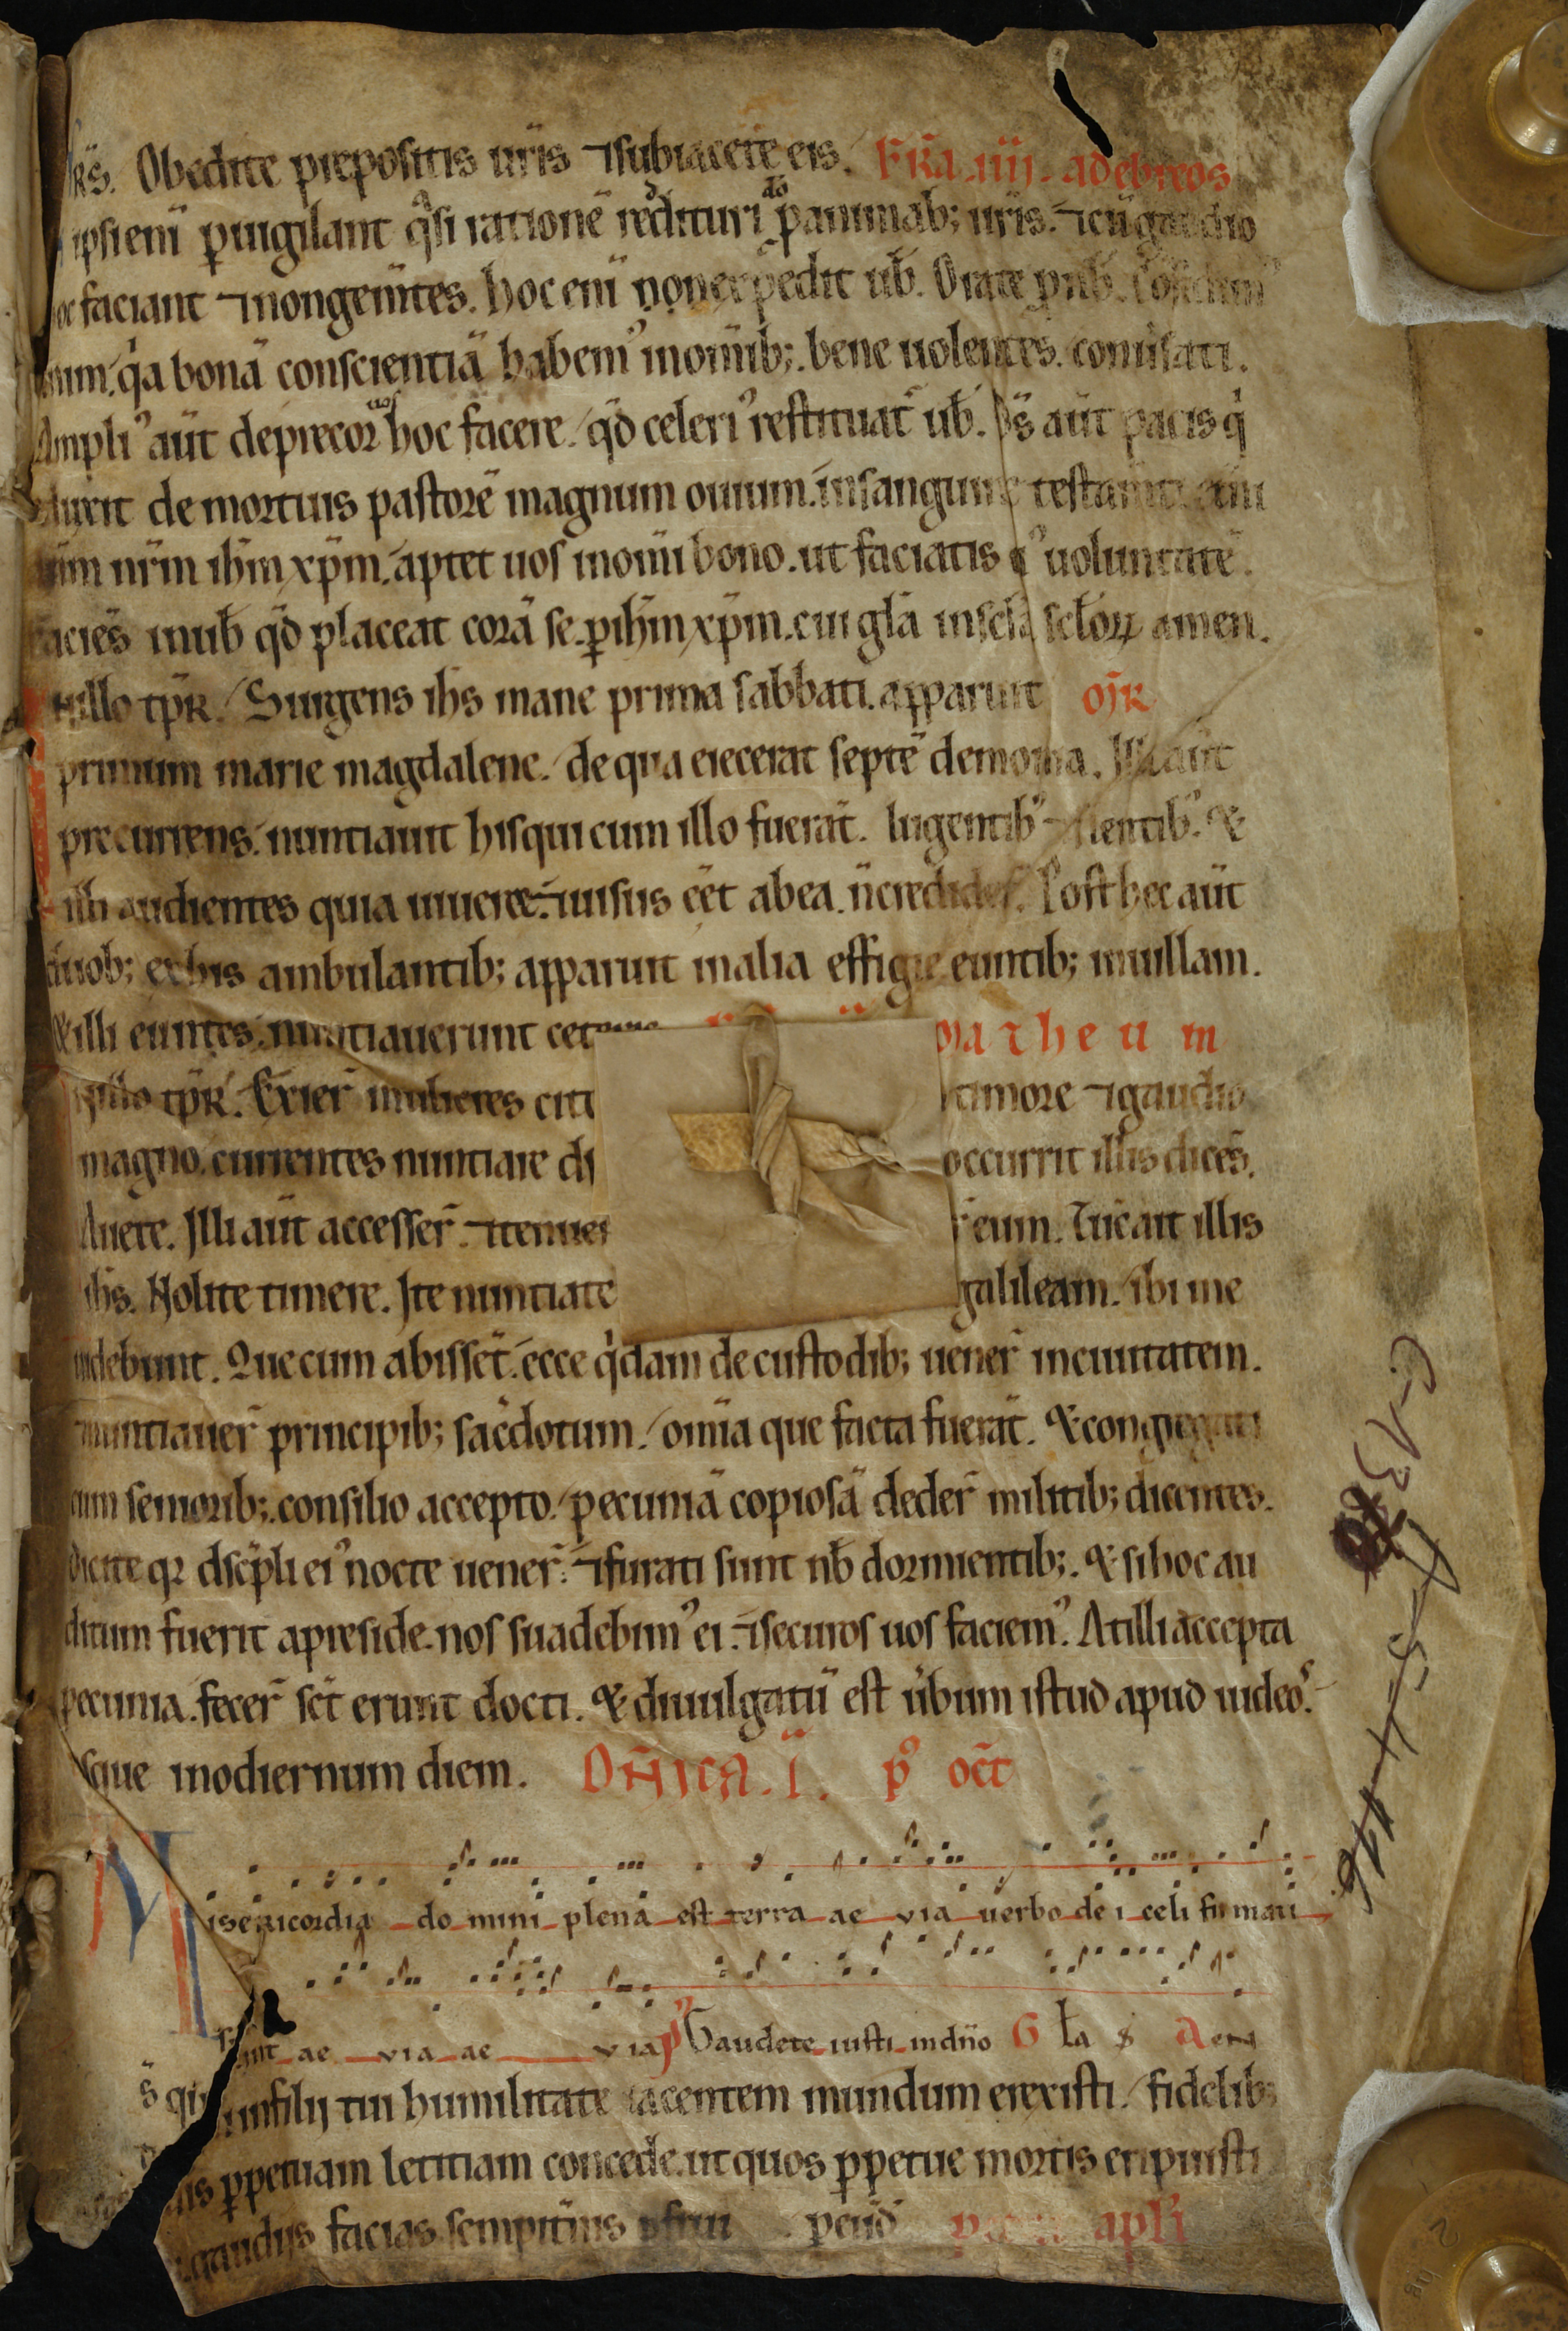 Obedite prepositis ur̄is ⁊subiacete eis. FR̄a .iiij. ad ebreos
ipsi eni̅ p̱uigilant q̊si ratione̅ reddituri p̱ animab; ur̄is. ⁊cu̅gaudio
faciant ⁊nongem̅tes. hoc eni̅ non exp̱edit ub̅. Orate p̱ nob̅.
q̊a bona̅ conscientia̅ habem᾿ inom̅ib;. bene uolentes. conu̅sari.
Ampli᾿ aut̅ deprecor uos hoc facere. qd̅ celeri᾿ restituar̅ ub̅. D̅s aut̅ pacis q̇
de mortuis pastore̅ magnum ouium. insanguine testam̅ti
nr̅m ih̅m xp̅m. aptet uos inom̅i bono. ut faciatis ei᾿ uoluntate̅.
facie̅s inub̅ qd̅ placeat cora̅ se. p̱ih̅m xp̅m. cui gl̅a inscl̅a scl̅oꝝ amen.
Nillo tp̅r. Surgens ih̅s mane prima sabbati. apparuit
primum marie magdalene. de qua eiecerat septe̅ demonia. Illa aut̅
precurrens. nuntiauit hisqui cum illo fuera̅t. lugentib᾿ ⁊flentib᾿. &
illi audientes quia uiueret. ⁊uisus ee̅t abea. n̅ credider̅. Posthec aut̅
duob; exhis ambulantib; apparuit inalia effigie euntib; inuillam.
&illi euntes. nuntiauerunt cet matheum
Nillo tp̅r. Exier̅ mulieres cit timore ⁊gaudio
magno. currentes nuntiare di occurrit illis dice̅s.
Auete. Illi aut̅ accesser̅. ⁊tenuer eum. Tu̅c ait illis
ih̅s. Nolite timere. Ite nuntiate galileam. ibi me
uidebunt. Que cum abisse̅t. ecce q̇dam de custodib; uener̅ inciuitatem.
⁊nuntiauer̅ principib; sac̅dotum. om̅ia que facta fuera̅t. &congregati
cum seniorib;. consilio accepto. pecunia̅ copiosa̅ deder̅ militib; dicentes.
Dicite qr dsc̅pli ei᾿ nocte uener̅. ⁊furati sunt nb̅ dormientib;. & si hoc au
ditum fuerit apreside. nos suadebim᾿ ei. ⁊securos uos faciem᾿. Atilli accepta
pecunia. fecer̅ sc̅t erant docti. & diuulgatu̅ est u̅bum istud apud iudeos.
sque inodiernum diem. DN̅ICA. I. p᾿ oct̅
Misericordia domini plena est terra ae via verbo dei celi firmati
sunt ae via ae via p᾿ Gaudete iusti indn̅o Gl̅a S Aeu
D̅s qui infilij tui humilitate iacentem mundum erexisti. fidelib;
tuis p̱petuam letitiam concede. ut quos p̱petue mortis eripuisti
gaudijs facias sempit̅nis p̱frui p̱ eu̅d̅ apl̅i